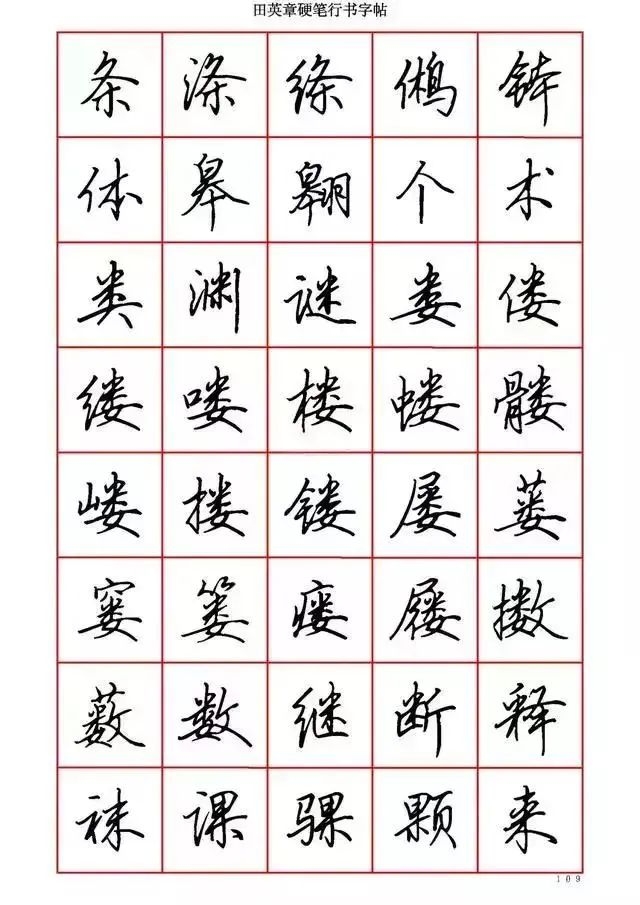 田英章硬笔行书字帖
条涤绦鸺钵
体皋翱个术
类渊谜娄偻
缕喽楼蝼髅
嵝搂镂屡蒌
窭篓瘘屦擞
薮数继断释
袜课骒颗来
109